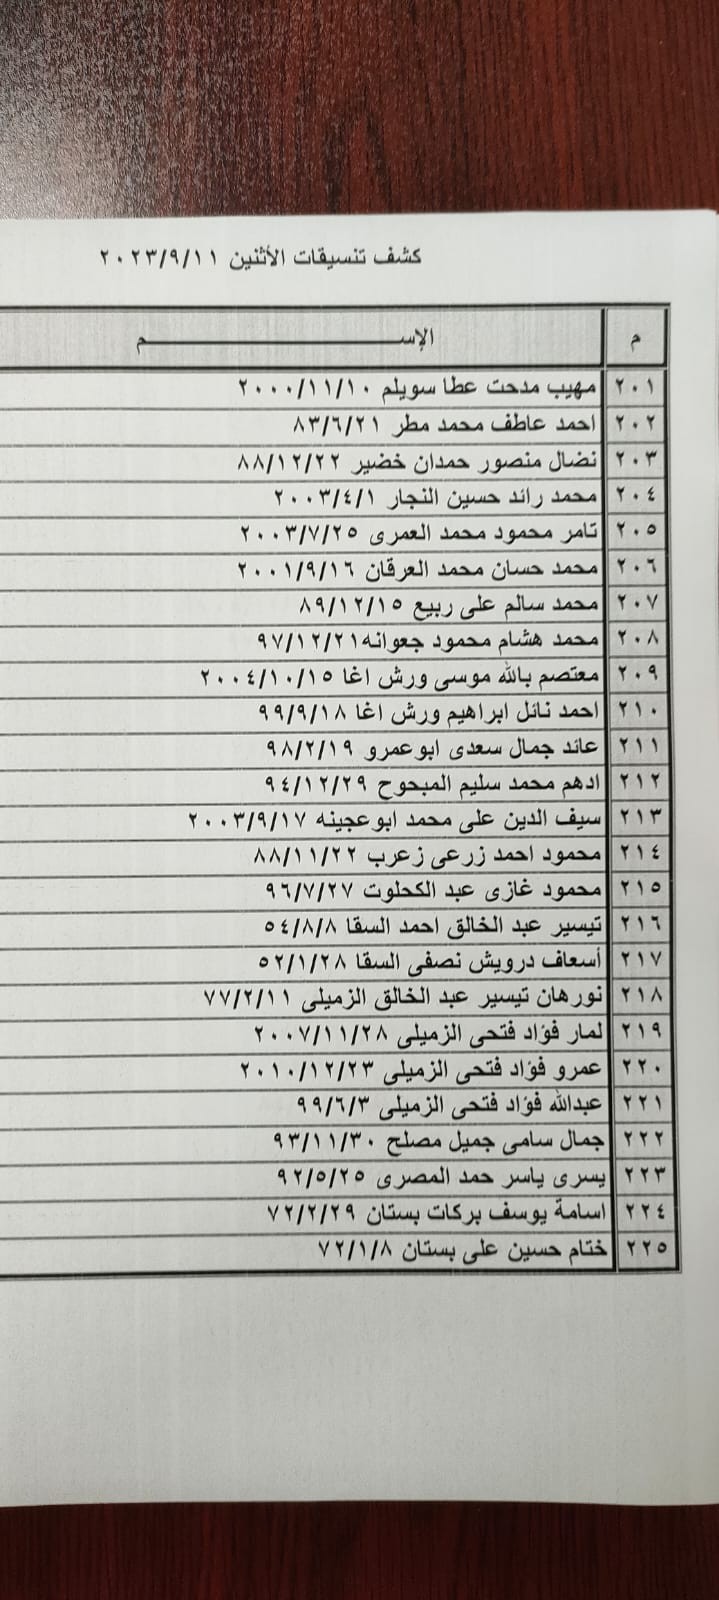 كشف تنسيقات الأثنين ٢٠٢٣/٩/١١
م الإســـــم
٢٠١ مهيب مدحت عطا سويلم ٢٠٠٠/١١/١٠
٢٠٢ احمد عاطف محمد مطر ٨٣/٦/٢١
٢٠٣ نضال منصور حمدان خضير ٨٨/١٢/٢٢
٢٠٤ محمد رائد حسين النجار ٢٠٠٣/٤/١
٢٠٥ تامر محمود محمد العمرى ٢٠٠٣/٧/٢٥
٢٠٦ محمد حسان محمد العرقان ٢٠٠١/٩/١٦
٢٠٧ محمد سالم على ربيع ٨٩/١٢/١٥
٢٠٨ محمد هشام محمود جعوانه٩٧/١٢/٢١
٢٠٩ معتصم بالله موسى ورش اغا ٢٠٠٤/١٠/١٥
٢١٠ احمد نائل ابراهيم ورش اغا ٩٩/٩/١٨
٢١١ عائد جمال سعدى ابوعمرو ٩٨/٢/١٩
٢١٢ ادهم محمد سليم المبحوح ٩٤/١٢/٢٩
٢١٣ سيف الدين على محمد ابوعجينه ٢٠٠٣/٩/١٧
٢١٤ محمود احمد زرعى زعرب ٨٨/١١/٢٢
٢١٥ محمود غازى عبد الكحلوت ٩٦/٧/٢٧
٢١٦ تيسير عبد الخالق احمد السقا ٥٤/٨/٨
٢١٧ أسعاف درويش نصفى السقا ٥٢/١/٢٨
٢١٨ نورهان تيسير عبد الخالق الزميلى ٧٧/٢/١١
٢١٩ لمار فؤاد فتحى الزميلى ٢٠٠٧/١١/٢٨
٢٢٠ عمرو فؤاد فتحى الزميلى ٢٠١٠/١٢/٢٣
٢٢١ عبدالله فؤاد فتحى الزميلى ٩٩/٦/٣
٢٢٢ جمال سامى جميل مصلح ٩٣/١١/٣٠
٢٢٣ يسرى ياسر حمد المصرى ٩٢/٥/٢٥
٢٢٤ اسامة يوسف بركات بستان ٧٢/٢/٢٩
٢٢٥ ختام حسين على بستان ٧٢/١/٨